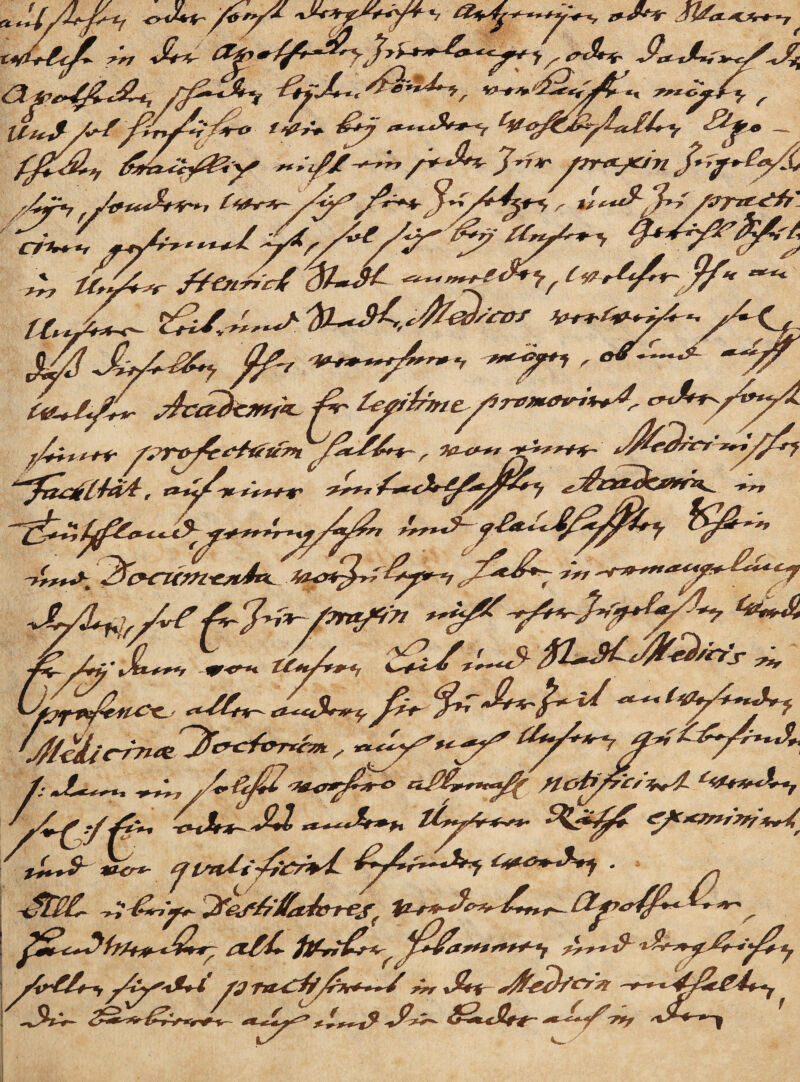 ausstehen oder sonst dergleichen Artzeneyen oder Waaren,
welche in der Apothecken zuerlangen, oder dadurch die
Apothecken schaden leyden könten, verkauffen mögen,
Und sol hinführo wie bey andern Wohlbestalten Apo-
thecken bräuchlich nicht ein jeder Zur praxin Zugelaße
seyn, sondern wer sich hier Zu setzen, und Zu practi-
ciren gesinnet ist, sol sich bey Unsern Gericht Schultz
in Unser Henrich Stadt anmelden, welcher Ihn an
Unsere Leib und Stadt Medicos verweisen sol,
daß dieselben Ihn vernehmen mögen, ob und auff
welcher Academia Er legitime promoviret, oder sonst
seiner profectuum halber, von einer Medicinischen
Facultät, auf einer untadelhafften Academia in
Teütschland, genungsahm und glaubhafften Schein
und Documenta vorzulegen habe, in ermangelung
deßen, sol Er Zur praxin nicht eher Zugelaßen werde
Er sey dann von Unsern Leib und Stadt Medicis in
præsence aller andern hie Zu der Zeit anwesenden
Medicinæ Doctorum, auch nach Unsern gutbefinden
/: dann ein solches vorhero allemahl notificiret werden
sol :/ Ein oder des andern Unserer Räthe examiniret,
und vor qvalificirt befunden worden.
Alle übrige Destillatores, verdorbene Apothecker
Handwercker, alte Weiber, Hebammen und dergleichen
sollen sich des practisirens in der Medicin enthalten,
die Barbierer auch und die Bader auch in den